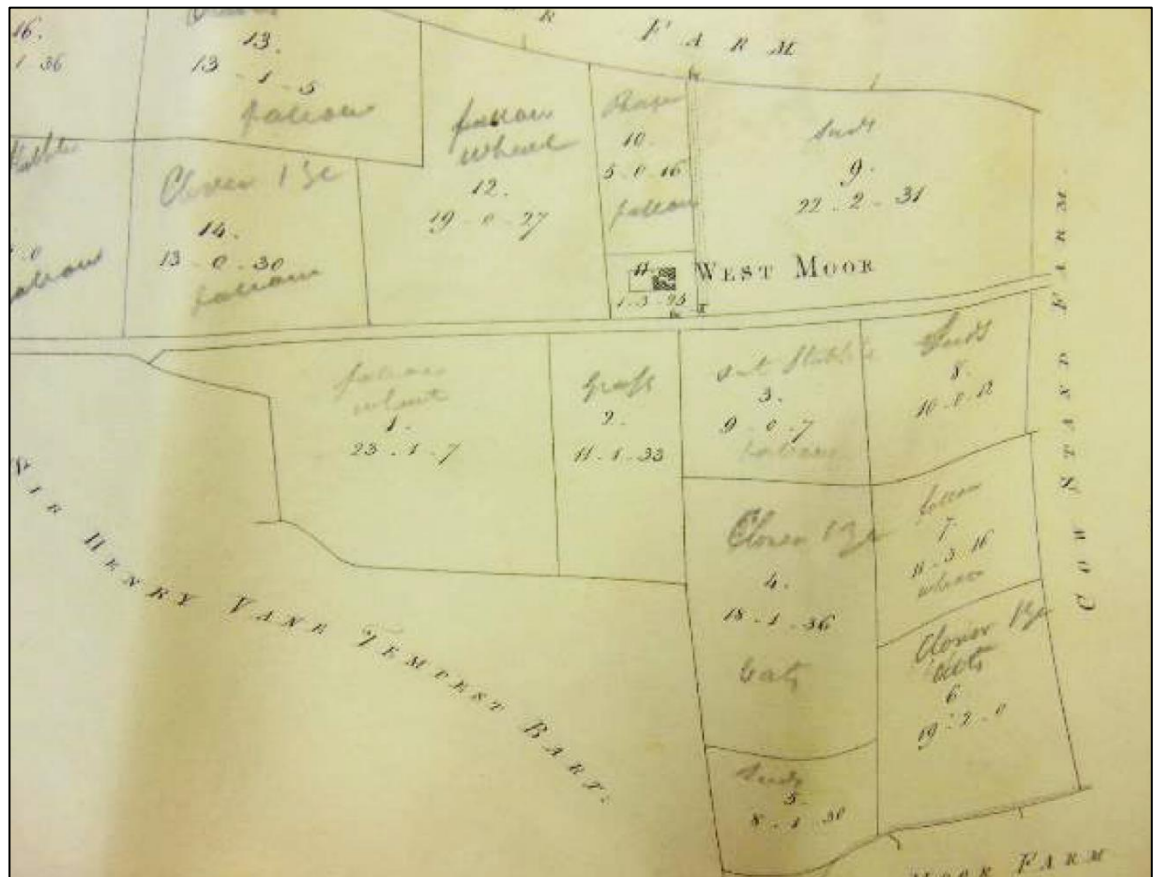 FARM
16.
1 36
13.
13 - 1 - 5
fallow
fallow
wheat
12.
19 - 0 - 27
10.
5 - 0 - 16
fallow
Seeds
9.
22 - 2 - 31
Stubble
Clover 1 Ye
14.
13 - 0 - 30
fallow
11.
1 - 3 - 25
WEST MOOR
COW STAND FARM.
fallow
wheat
1.
23 - 1 - 7
Grass
2.
11 - 1 - 33
Oat Stubble
3.
9 - 0 - 7
fallow
Seeds
8.
10 - 0 - 12
Clover 1 Ye
4.
18 - 1 - 36
Oats
fallow
7.
11 - 3 - 16
wheat
Clover 1 Ye
Oats
6
19 - 2 - 0
Seeds
5.
8 - 1 - 30
SIR HENRY VANE TEMPEST BART.
MOOR FARM